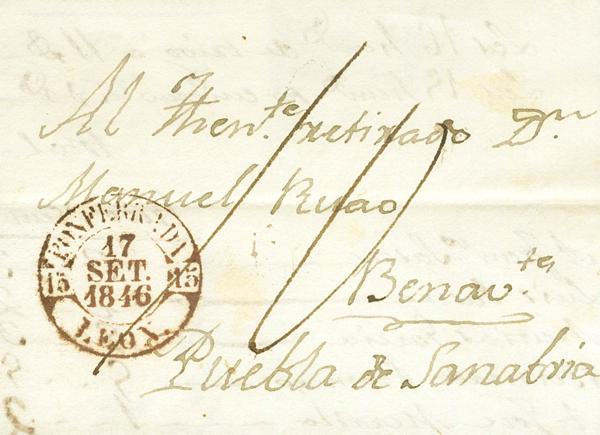 Al Then.te retirado Dn.
Manuel Ruao
Benav.tes
Puebla de Sanabria
10
PONFERRADA
17
SET.
1846
15 15
LEON.